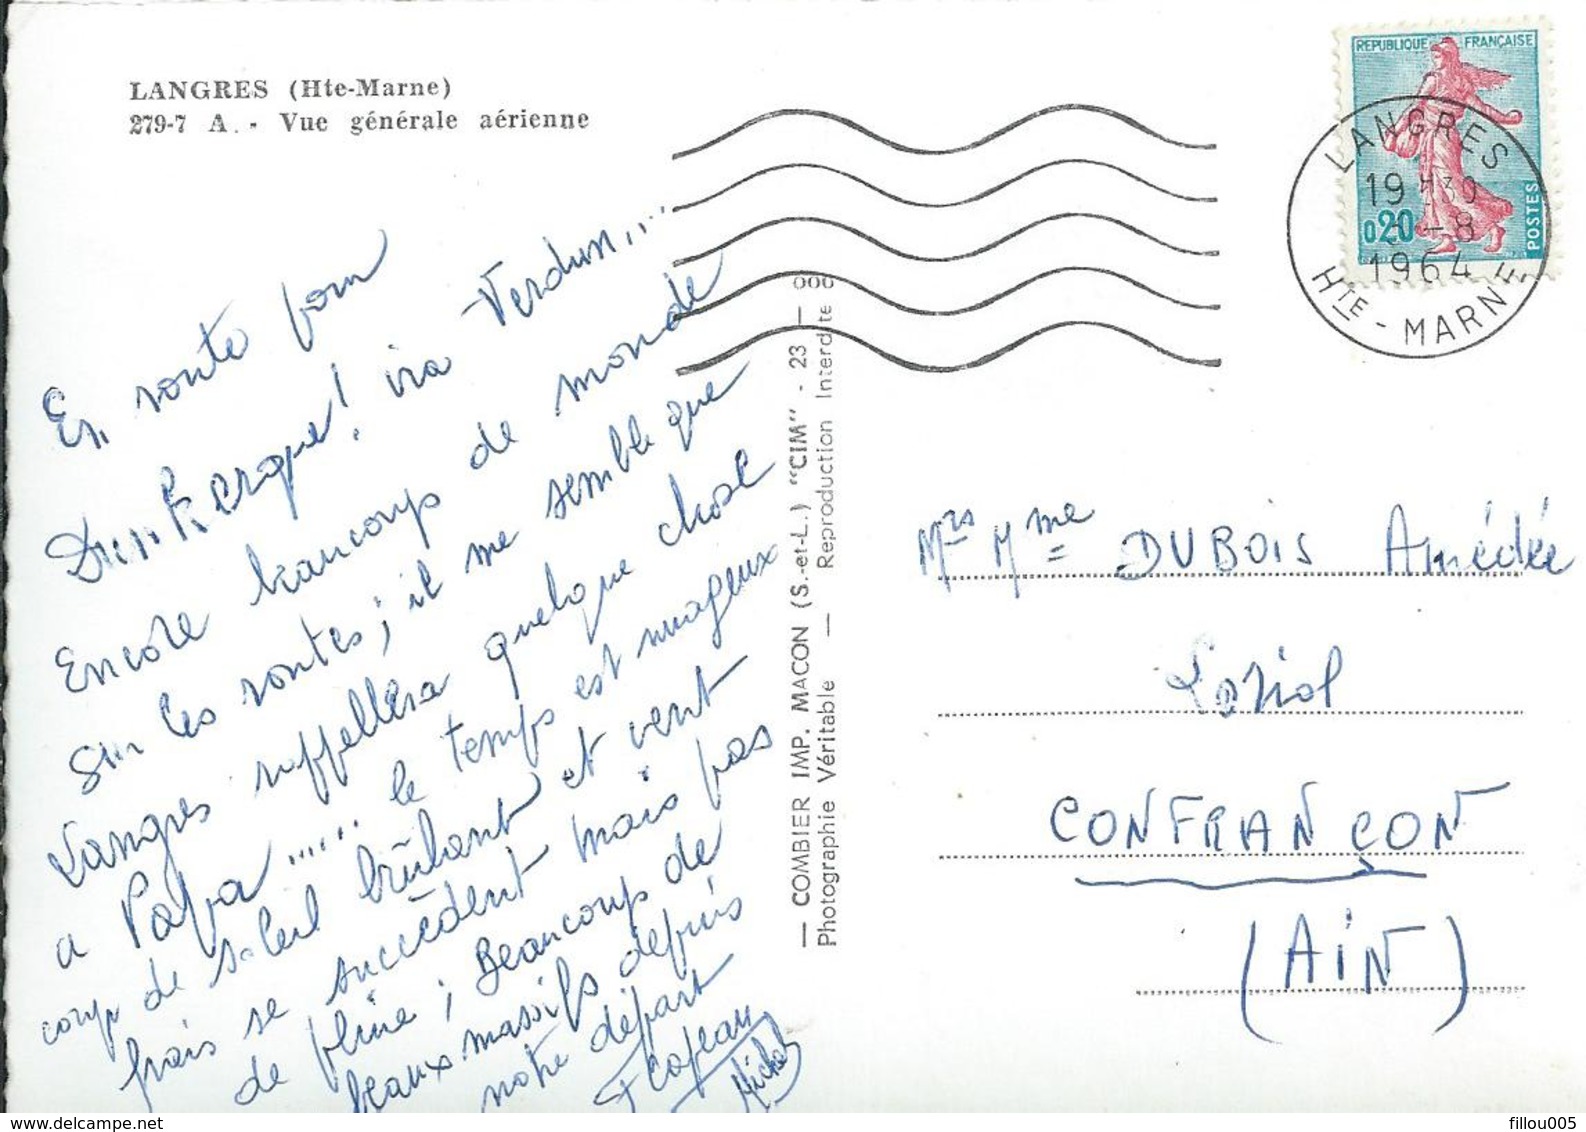 LANGRES (Hte-Marne)
279-7 A. - Vue générale aérienne
REPUBLIQUE FRANÇAISE
POSTES
0.20
LANGRES
19 H30
-8
1964
HTE - MARNE
En route pour
Dunkerque! via Verdun....
Encore beaucoup de monde
sur les routes; il me semble que
Langres rappellera quelque chose
a Papa...... le temps est nuageux
coup de soleil brûlant et vent
frais se succèdent mais pas
de pluie; Beaucoup de
beaux massifs depuis
notre départ
Michel
— COMBIER IMP. MACON (S.-et-L.) "CIM" - 23 — 000
Photographie Véritable — Reproduction Interdite
Mrs Mme DUBOIS Amédée
Loriol
CONFRANÇON
(AIN)
delcampe.net
fillou005